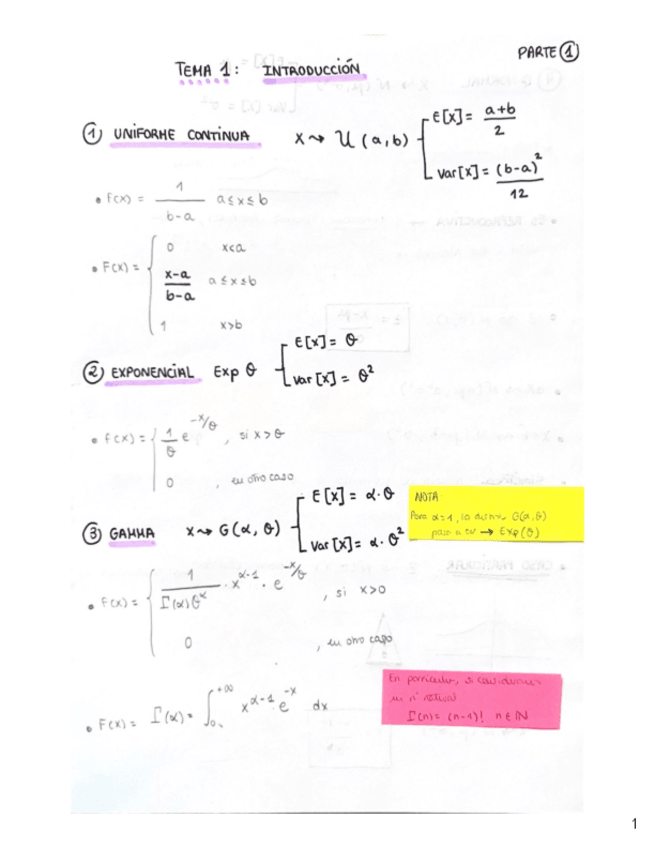 PARTE ①
TEMA 1: INTRODUCCIÓN
① UNIFORME CONTINUA X ⇝ U (a,b) E[X] = a+b / 2
Var[X] = (b-a)² / 12
• F(x) = 1 / b-a a ≤ x ≤ b
• F(x) = { 0 x<a
x-a / b-a a ≤ x ≤ b
1 x>b
② EXPONENCIAL Exp θ E[X] = θ
Var[X] = θ²
• f(x) = { 1/θ e^-x/θ , si x>0
0 , en otro caso
③ GAMMA X ⇝ G(α, θ) E[X] = α·θ
Var[X] = α·θ²
NOTA
Para α=1, la G(α,θ)
pasa a → Exp(θ)
• F(x) = { 1 / Γ(α)θ^α · x^α-1 · e^-x/θ , si x>0
0 , en otro caso
En particular, si
un nº natural
Γ(n) = (n-1)! n∈ℕ
• F(x) = Γ(α) = ∫₀^+∞ x^α-1 · e^-x dx
1